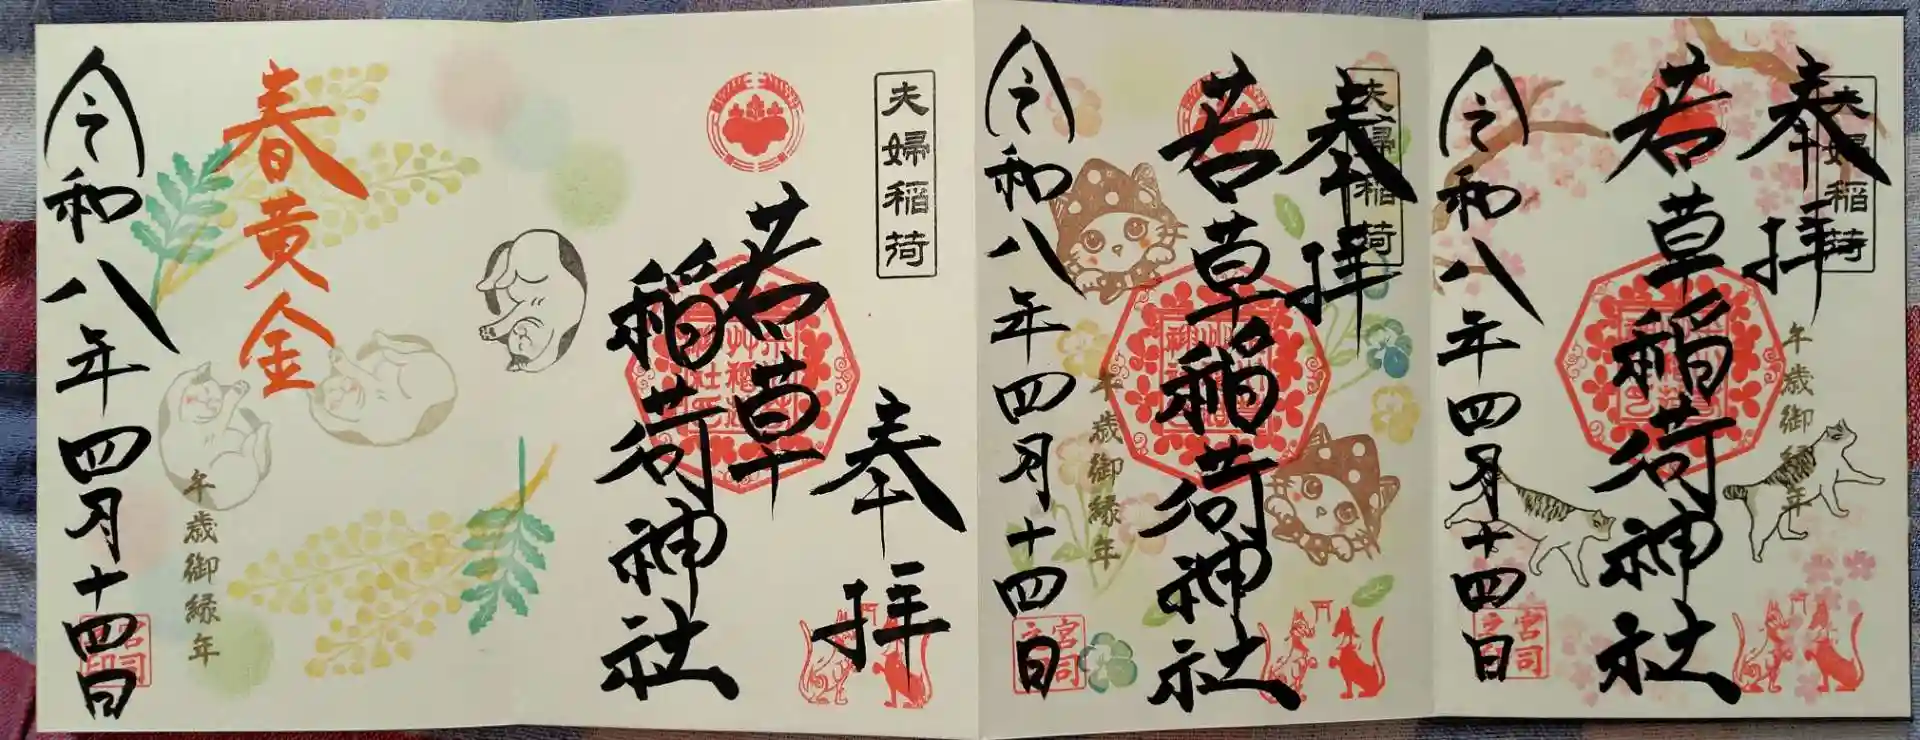 夫婦稲荷
奉拝
若草稲荷神社
午歳御縁年
令和八年四月十四日
宮司
夫婦稲荷
奉拝
若草稲荷神社
午歳御縁年
令和八年四月十四日
宮司
夫婦稲荷
奉拝
若草
稲荷神社
春黄金
午歳御縁年
令和八年四月十四日
宮司